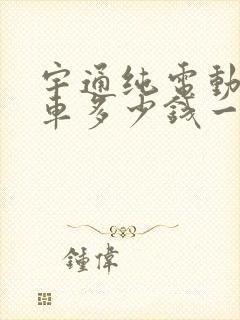 宇通纯電動
車多少錢一
鍾偉